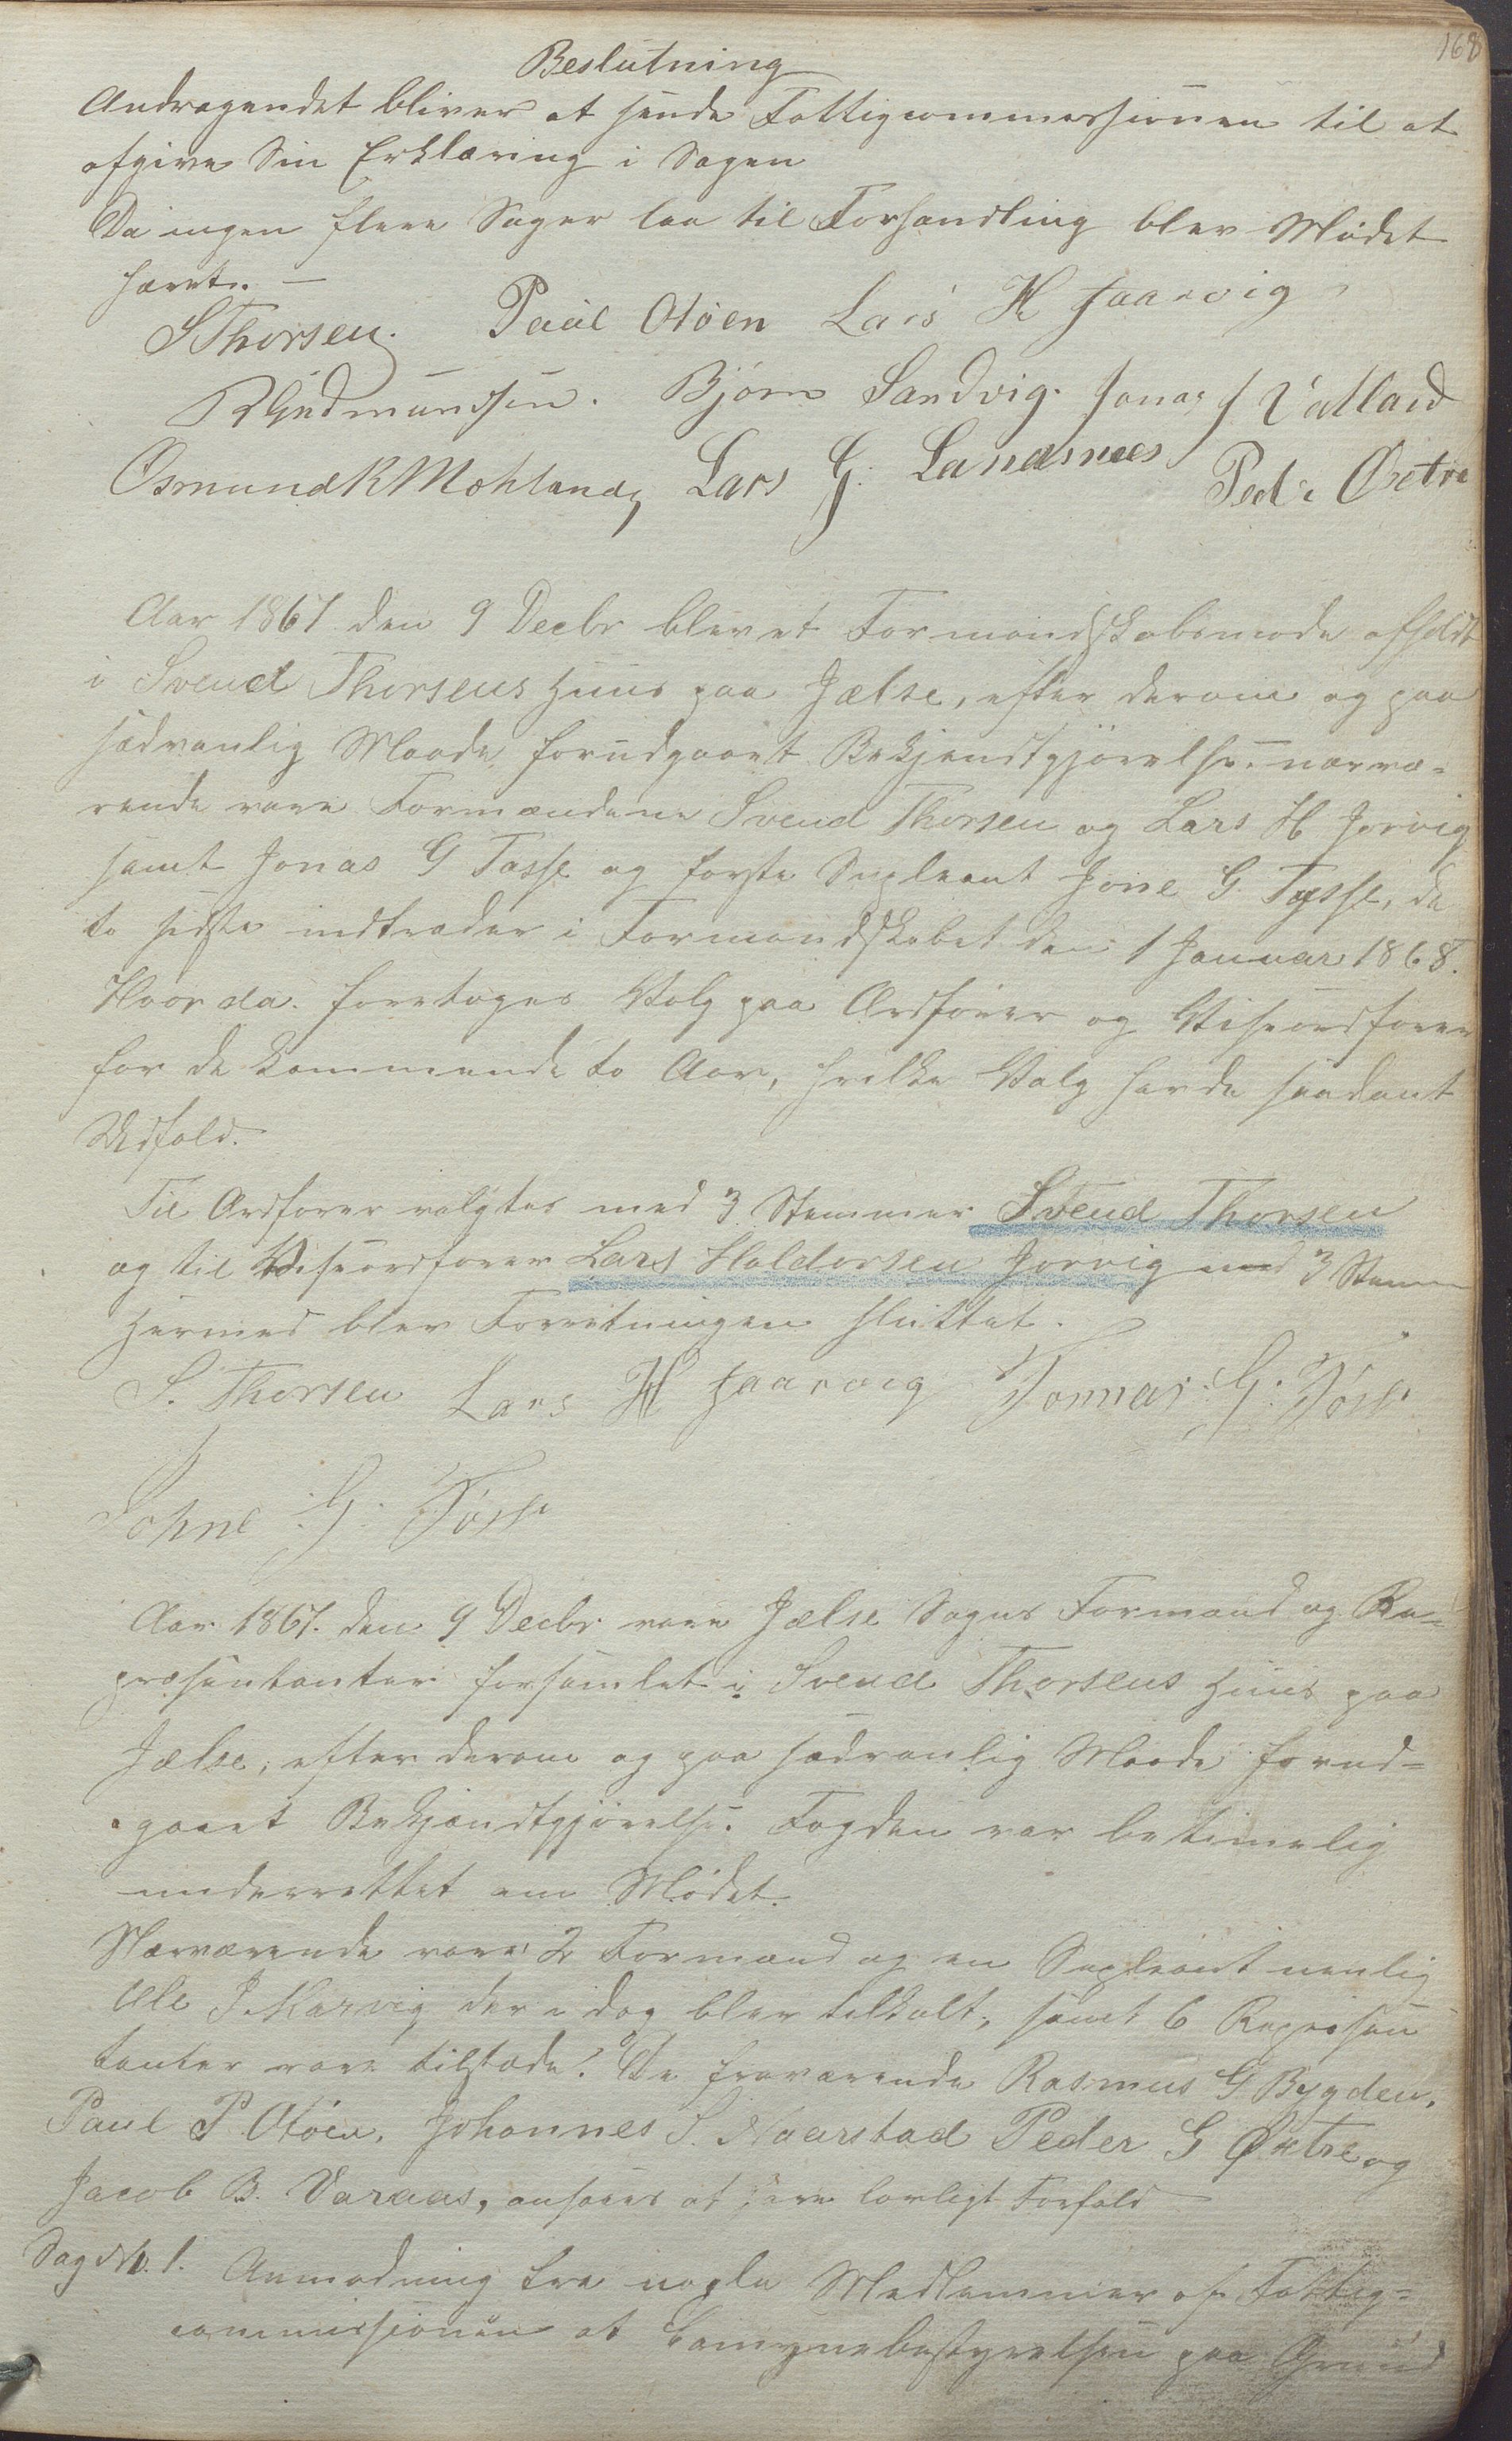 168
Beslutning
Andragendet bliver at sende Fattigcommissionen til at
afgive Sin Erklæring i Sagen
Da ingen flere Sager laa til Forhandling blev Mødet
hævet. —
S Thorsen. Paul Otöen Lars H Jaarvig
R Gudmundsen. Bjørn Sandvig. Jonas J Vatland
Osmund R Mohland, Lars G. Landsnees Peder Øxtre
Aar 1867 den 9 Decbr blev et Formandskabsmøde afholdt
i Svend Thorsens Huus paa Jælse, efter derom og paa
sædvanlig Maade forudgaaet Bekjendtgjörelse. nærvæ-
rende vare Formændene Svend Thorsen og Lars H Jorvig
samt Jonas G Tøsse og første Supleant Jone G. Tøsse, de
to sidste indtræder i Formandskabet den 1 Januar 1868.
Hvor da foretoges Valg paa Ordfører og Viseordfører
for de kommende to Aar, hvilke Valg havde saadant
Udfald.
Til Ordfører valgtes med 3 Stemmer Svend Thorsen
og til Viseordfører Lars Haldorsen Jorvig med 3 Stemm
Hermed blev Forretningen sluttet.
S. Thorsen Lars H Jaarvig Jonnas: G: Tösse
Johne :G: Tösse
Aar 1867. den 9 Decbr vare Jælse Sogns Formænd og Re-
præsentanter forsamlet i Svend Thorsens Huus paa
Jælse, efter derom og paa sædvanlig Maade forud-
gaaet Bekjendtgjörelse. Fogden var betimelig
underrettet om Mødet.
Nærværende vare 2 Formænd og en Supleant nemlig
Ole J. Narvig der i dag blev tilkalt, samt 6 Represen
tanter vare tilstede. De fraværende Rasmus G Bygden,
Paul P Otöen, Johannes S. Naarstad Peder G Øxtre og
Jacob B. Varaas, ansaaes at have lovligt Forfald
Sag No. 1. Anmodning fra nogle Medlemmer af Fattig-
commissionen at Comunebestyrelsen paa Grund